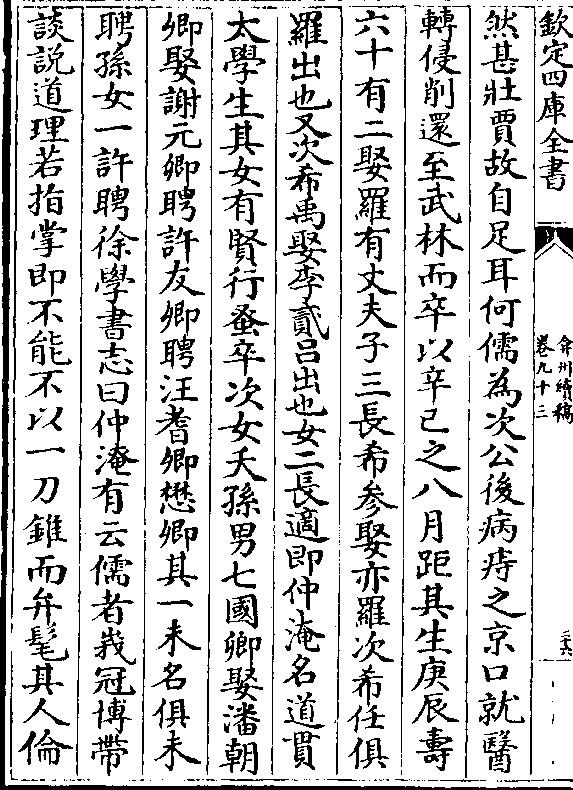 欽定四庫全書
弇州續稿
卷九十三
然甚壯賈故自足耳何儒為次公後病痔之京口就醫
轉侵削還至武林而卒以辛巳之八月距其生庚辰壽
六十有二娶羅有丈夫子三長希参娶亦羅次希任俱
羅出也又次希禹娶李貳吕出也女二長適即仲淹名道貫
太學生其女有賢行蚤卒次女夭孫男七國卿娶潘朝
卿娶謝元卿聘許友卿聘汪耆卿懋卿其一未名俱未
聘孫女一許聘徐學書志曰仲淹有云儒者峩冠博帶
談說道理若指掌即不能不以一刀錐而弁髦其人倫